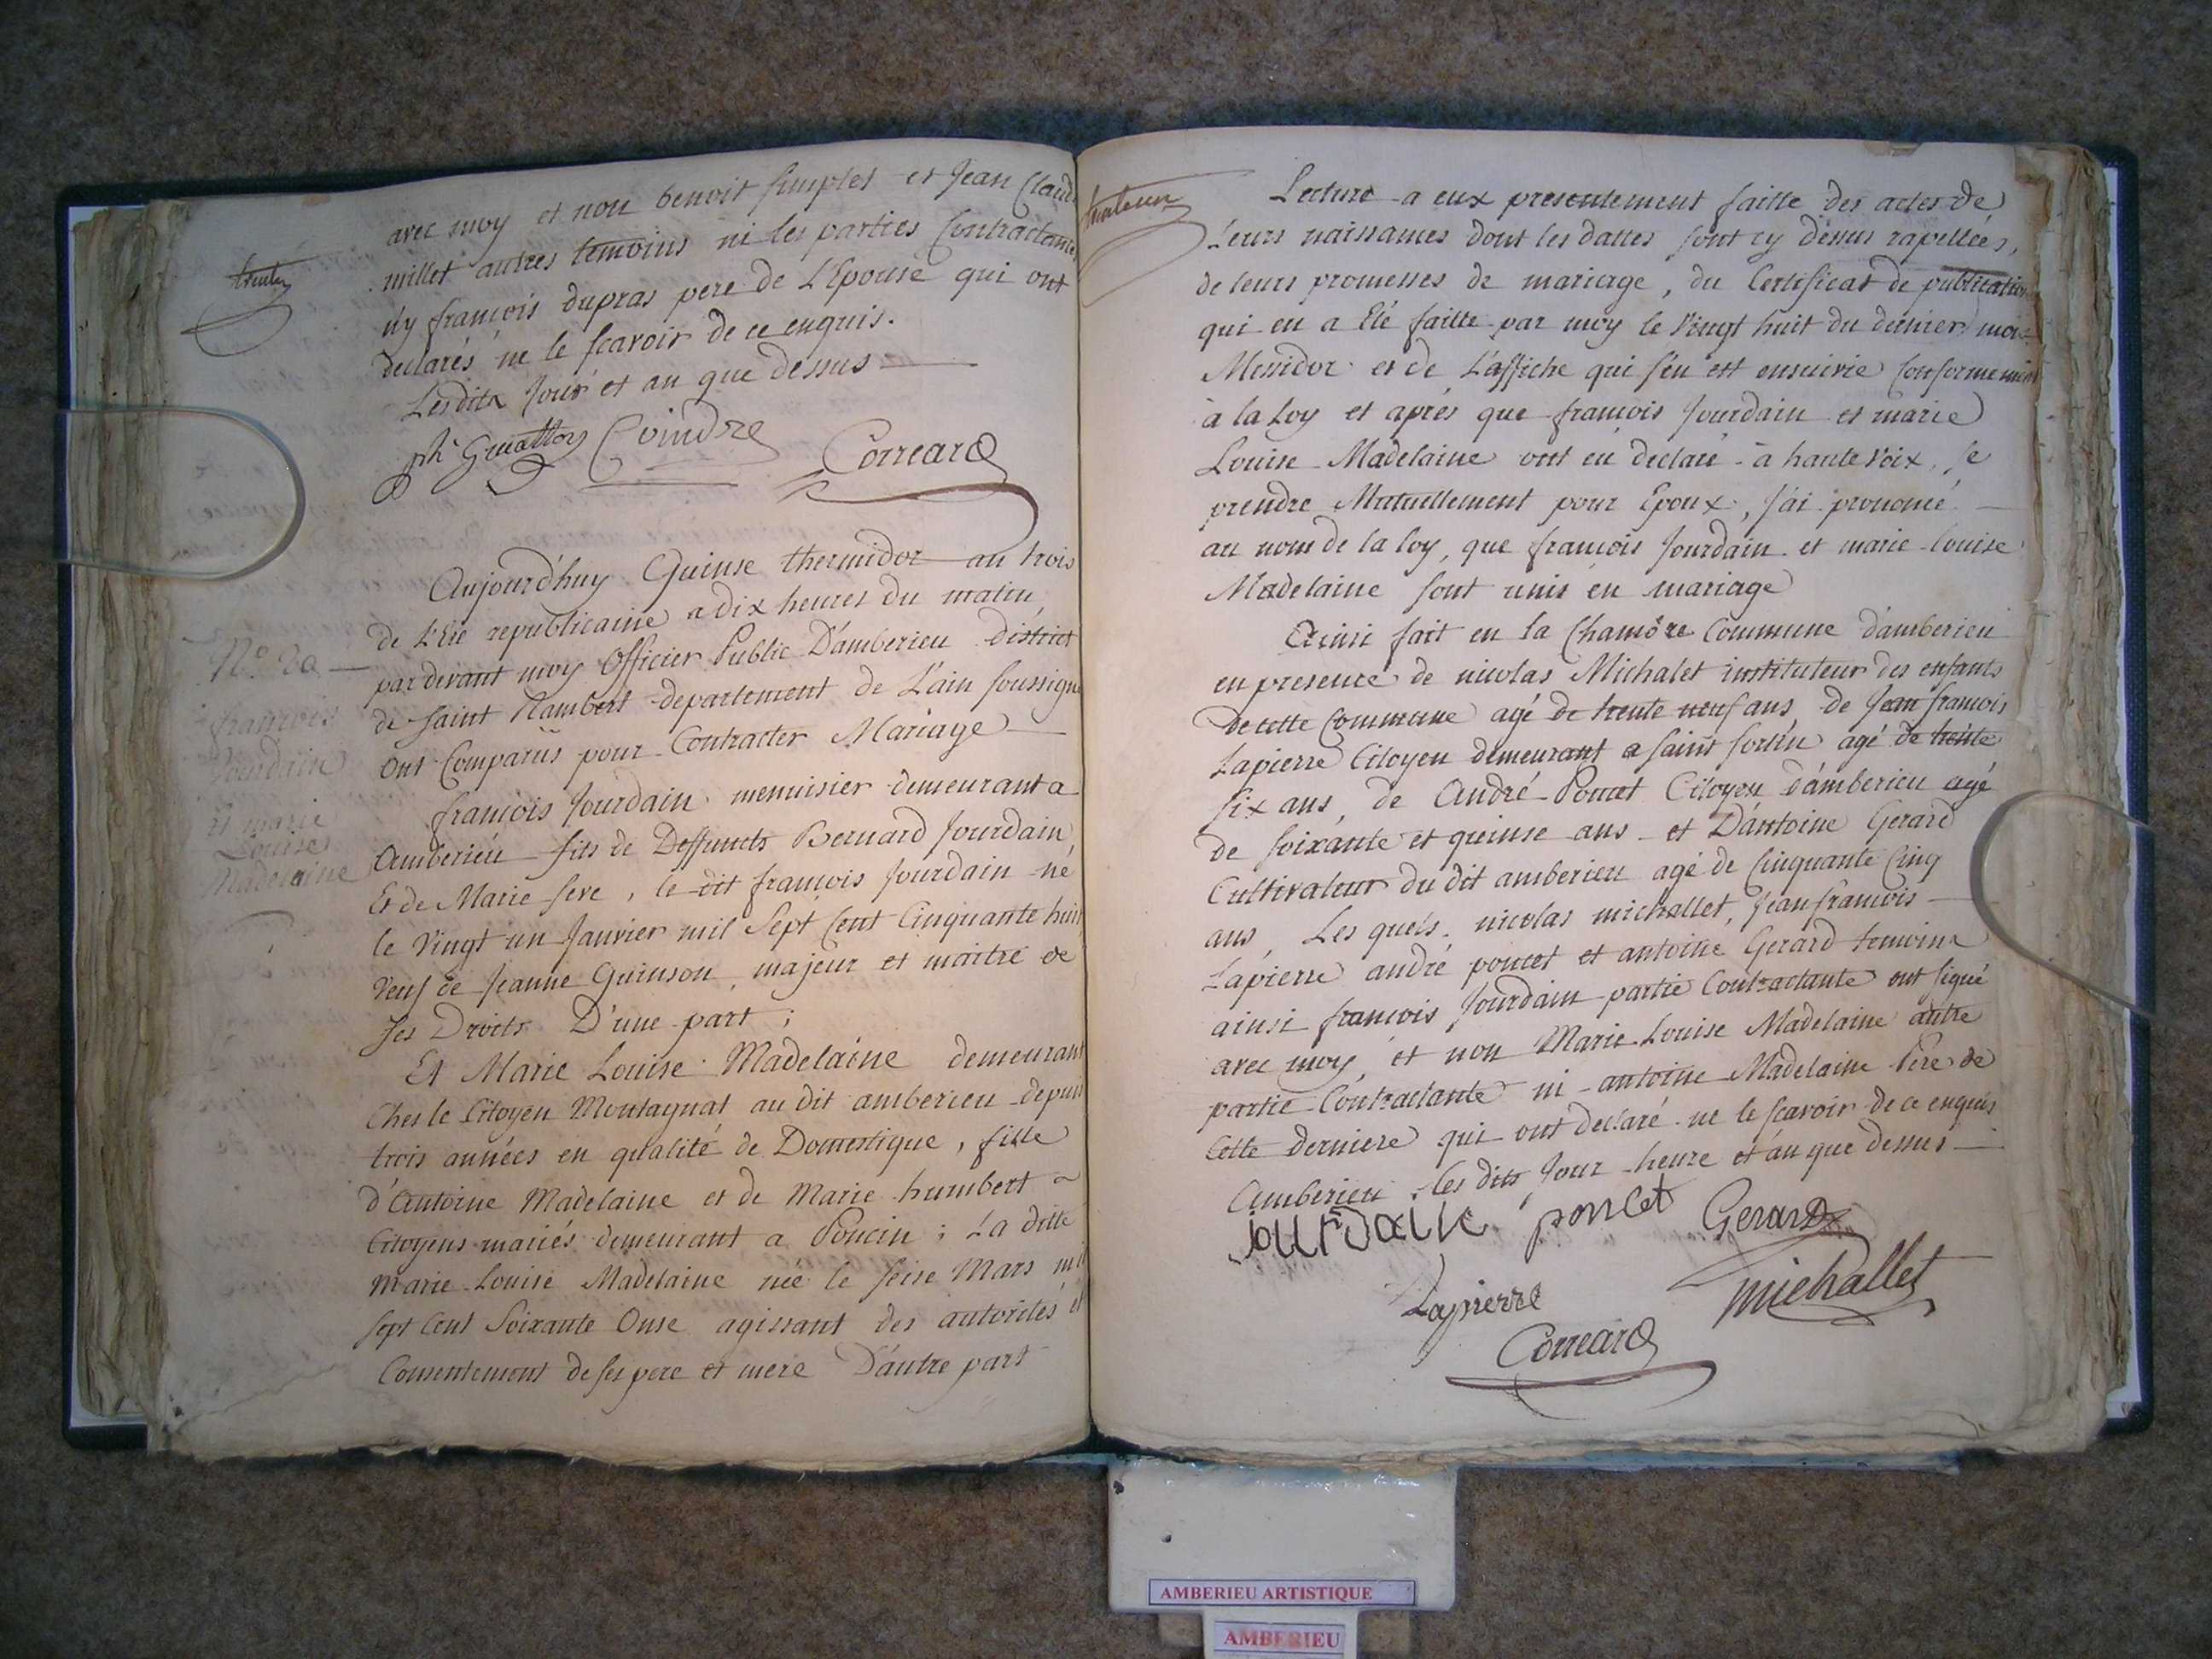 avec moy et non benoit simplet et Jean Claude
millet autres temoins ni les parties Contractantes
n'y françois dupras pere de L'Epouse qui ont
declarés ne le sçavoir de ce enquis.
Lesdits Jour et an que dessus
Coindre
Correard
Aujourd'huy Quinse thermidor an trois
de L'Ere republicaine a dix heures du matin
par devant moy Officier Public D'amberieu District
de saint Rambert departement de L'ain soussigné
Ont Comparüs pour Contracter Mariage
N.º 20
françois
Jourdain
et marie
Louise
Madelaine
françois Jourdain menuisier demeurant a
Amberieu fils de Deffunts Bernard Jourdain
Et de Marie seve, le dit françois Jourdain né
le Vingt un Janvier mil Sept Cent Cinquante huit
Veuf de Jeanne Guinson, majeur et maitre de
ses Droits D'une part ;
Et Marie Louise Madelaine demeurant
Ches le Citoyen Montagnat au dit amberieu depuis
trois années en qualité de Domestique, fille
d'Antoine Madelaine et de Marie humbert
Citoyens mariés demeurant a Poncin ; La ditte
Marie Louise Madelaine née le seise Mars mil
sept Cent Soixante Onse agissant des autorités et
Consentement de ses pere et mere D'autre part
Lecture a eux presentement faitte des actes de
Leurs naissances dont les dattes sont cy dessus rapellées,
de leurs promesses de mariage, du Certificat de publication
qui en a Eté faitte par moy le Vingt huit du dernier mois
Messidor et de L'affiche qui s'en est ensuivie Conformement
à la Loy et après que françois Jourdain et marie
Louise Madelaine ont eu declaré à haute Voix se
prendre Mutuellement pour Epoux, j'ai prononcé
au nom de la loy, que françois Jourdain et marie louise
Madelaine sont unis en mariage
Ainsi fait en la Chambre Commune d'amberieu
en presence de nicolas Michalet instituteur des enfants
de cette Commune agé de trente neuf ans, de Jean françois
Lapierre Citoyen demeurant a saint sorlin agé de trente
six ans, de André Poncet Citoyen d'amberieu agé
de soixante et quinse ans et D'antoine Gerard
Cultivateur du dit amberieu agé de Cinquante Cinq
ans, Les quels nicolas michallet, Jean françois
Lapierre andré poncet et antoine Gerard temoins
ainsi françois Jourdain partie Contractante ont signé
avec moy, et non Marie Louise Madelaine autre
partie Contractante ni antoine Madelaine Pere de
Cette derniere qui ont declaré ne le sçavoir de ce enquis
Amberieu les dits Jour heure et an que dessus
jourdain poncet Gerard
Lapierre michallet
Correard
AMBERIEU ARTISTIQUE
AMBERIEU